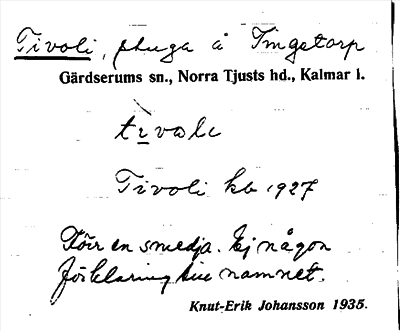 Tivoli, stuga å Tingetorp
Gärdserums sn., Norra Tjusts hd., Kalmar l.
tivoli
Tivoli kb 1927
Förr en smedja. Ej någon
förklaring till namnet.
Knut-Erik Johansson 1935.